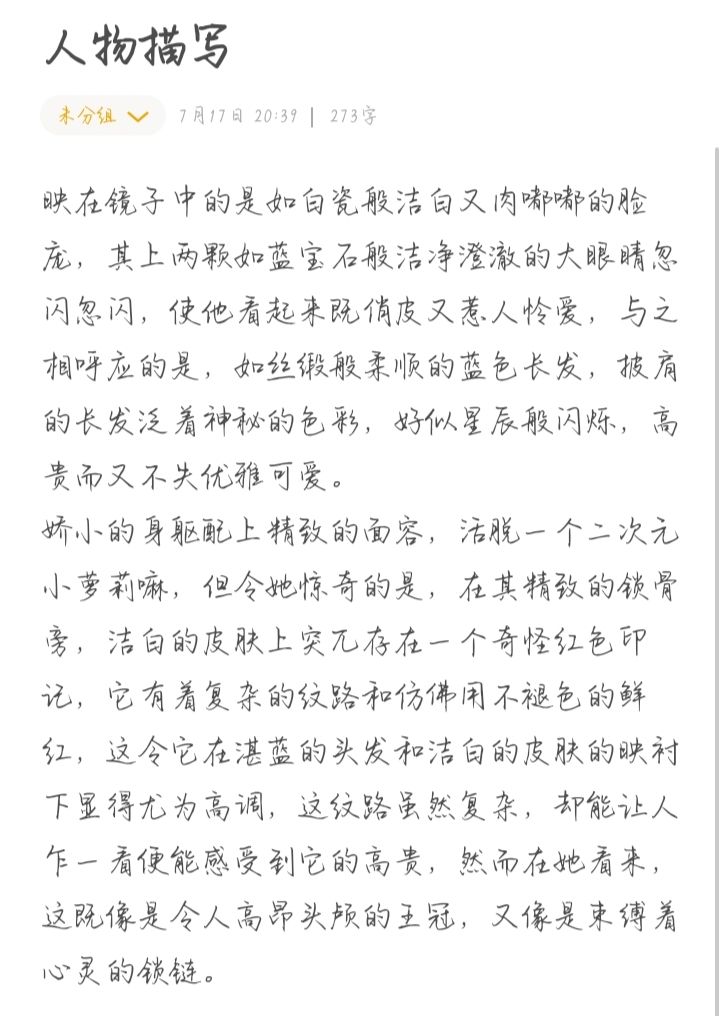 人物描写
未分组 7月17日 20:39 | 273字
映在镜子中的是如白瓷般洁白又肉嘟嘟的脸
庞，其上两颗如蓝宝石般洁净澄澈的大眼睛忽
闪忽闪，使他看起来既俏皮又惹人怜爱，与之
相呼应的是，如丝缎般柔顺的蓝色长发，披肩
的长发泛着神秘的色彩，好似星辰般闪烁，高
贵而又不失优雅可爱。
娇小的身躯配上精致的面容，活脱一个二次元
小萝莉嘛，但令她惊奇的是，在其精致的锁骨
旁，洁白的皮肤上突兀存在一个奇怪红色印
记，它有着复杂的纹路和仿佛用不褪色的鲜
红，这令它在湛蓝的头发和洁白的皮肤的映衬
下显得尤为高调，这纹路虽然复杂，却能让人
乍一看便能感受到它的高贵，然而在她看来，
这既像是令人高昂头颅的王冠，又像是束缚着
心灵的锁链。